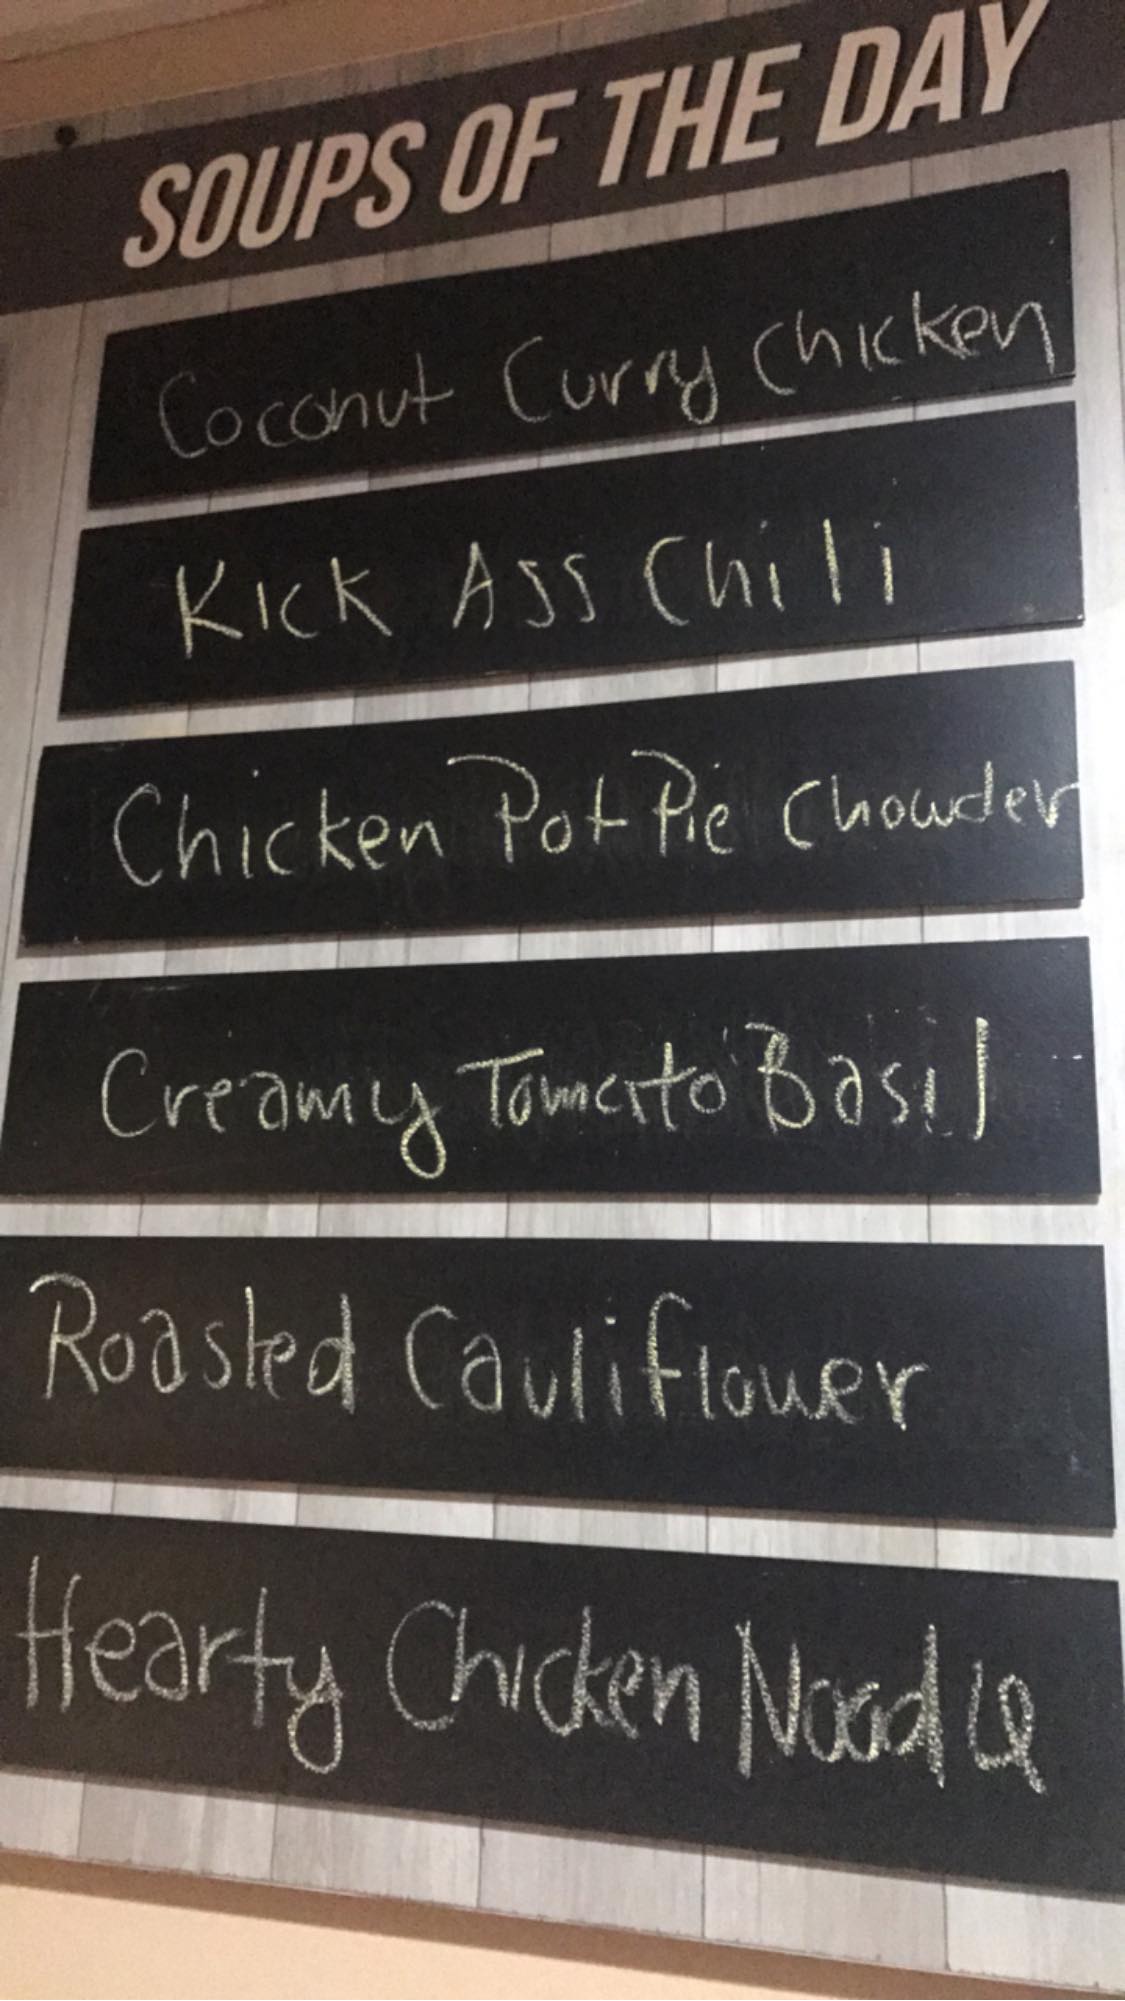 SOUPS OF THE DAY
Coconut Curry Chicken
Kick Ass Chili
Chicken Pot Pie Chowder
Creamy Tomato Basil
Roasted Cauliflower
Hearty Chicken Noodle